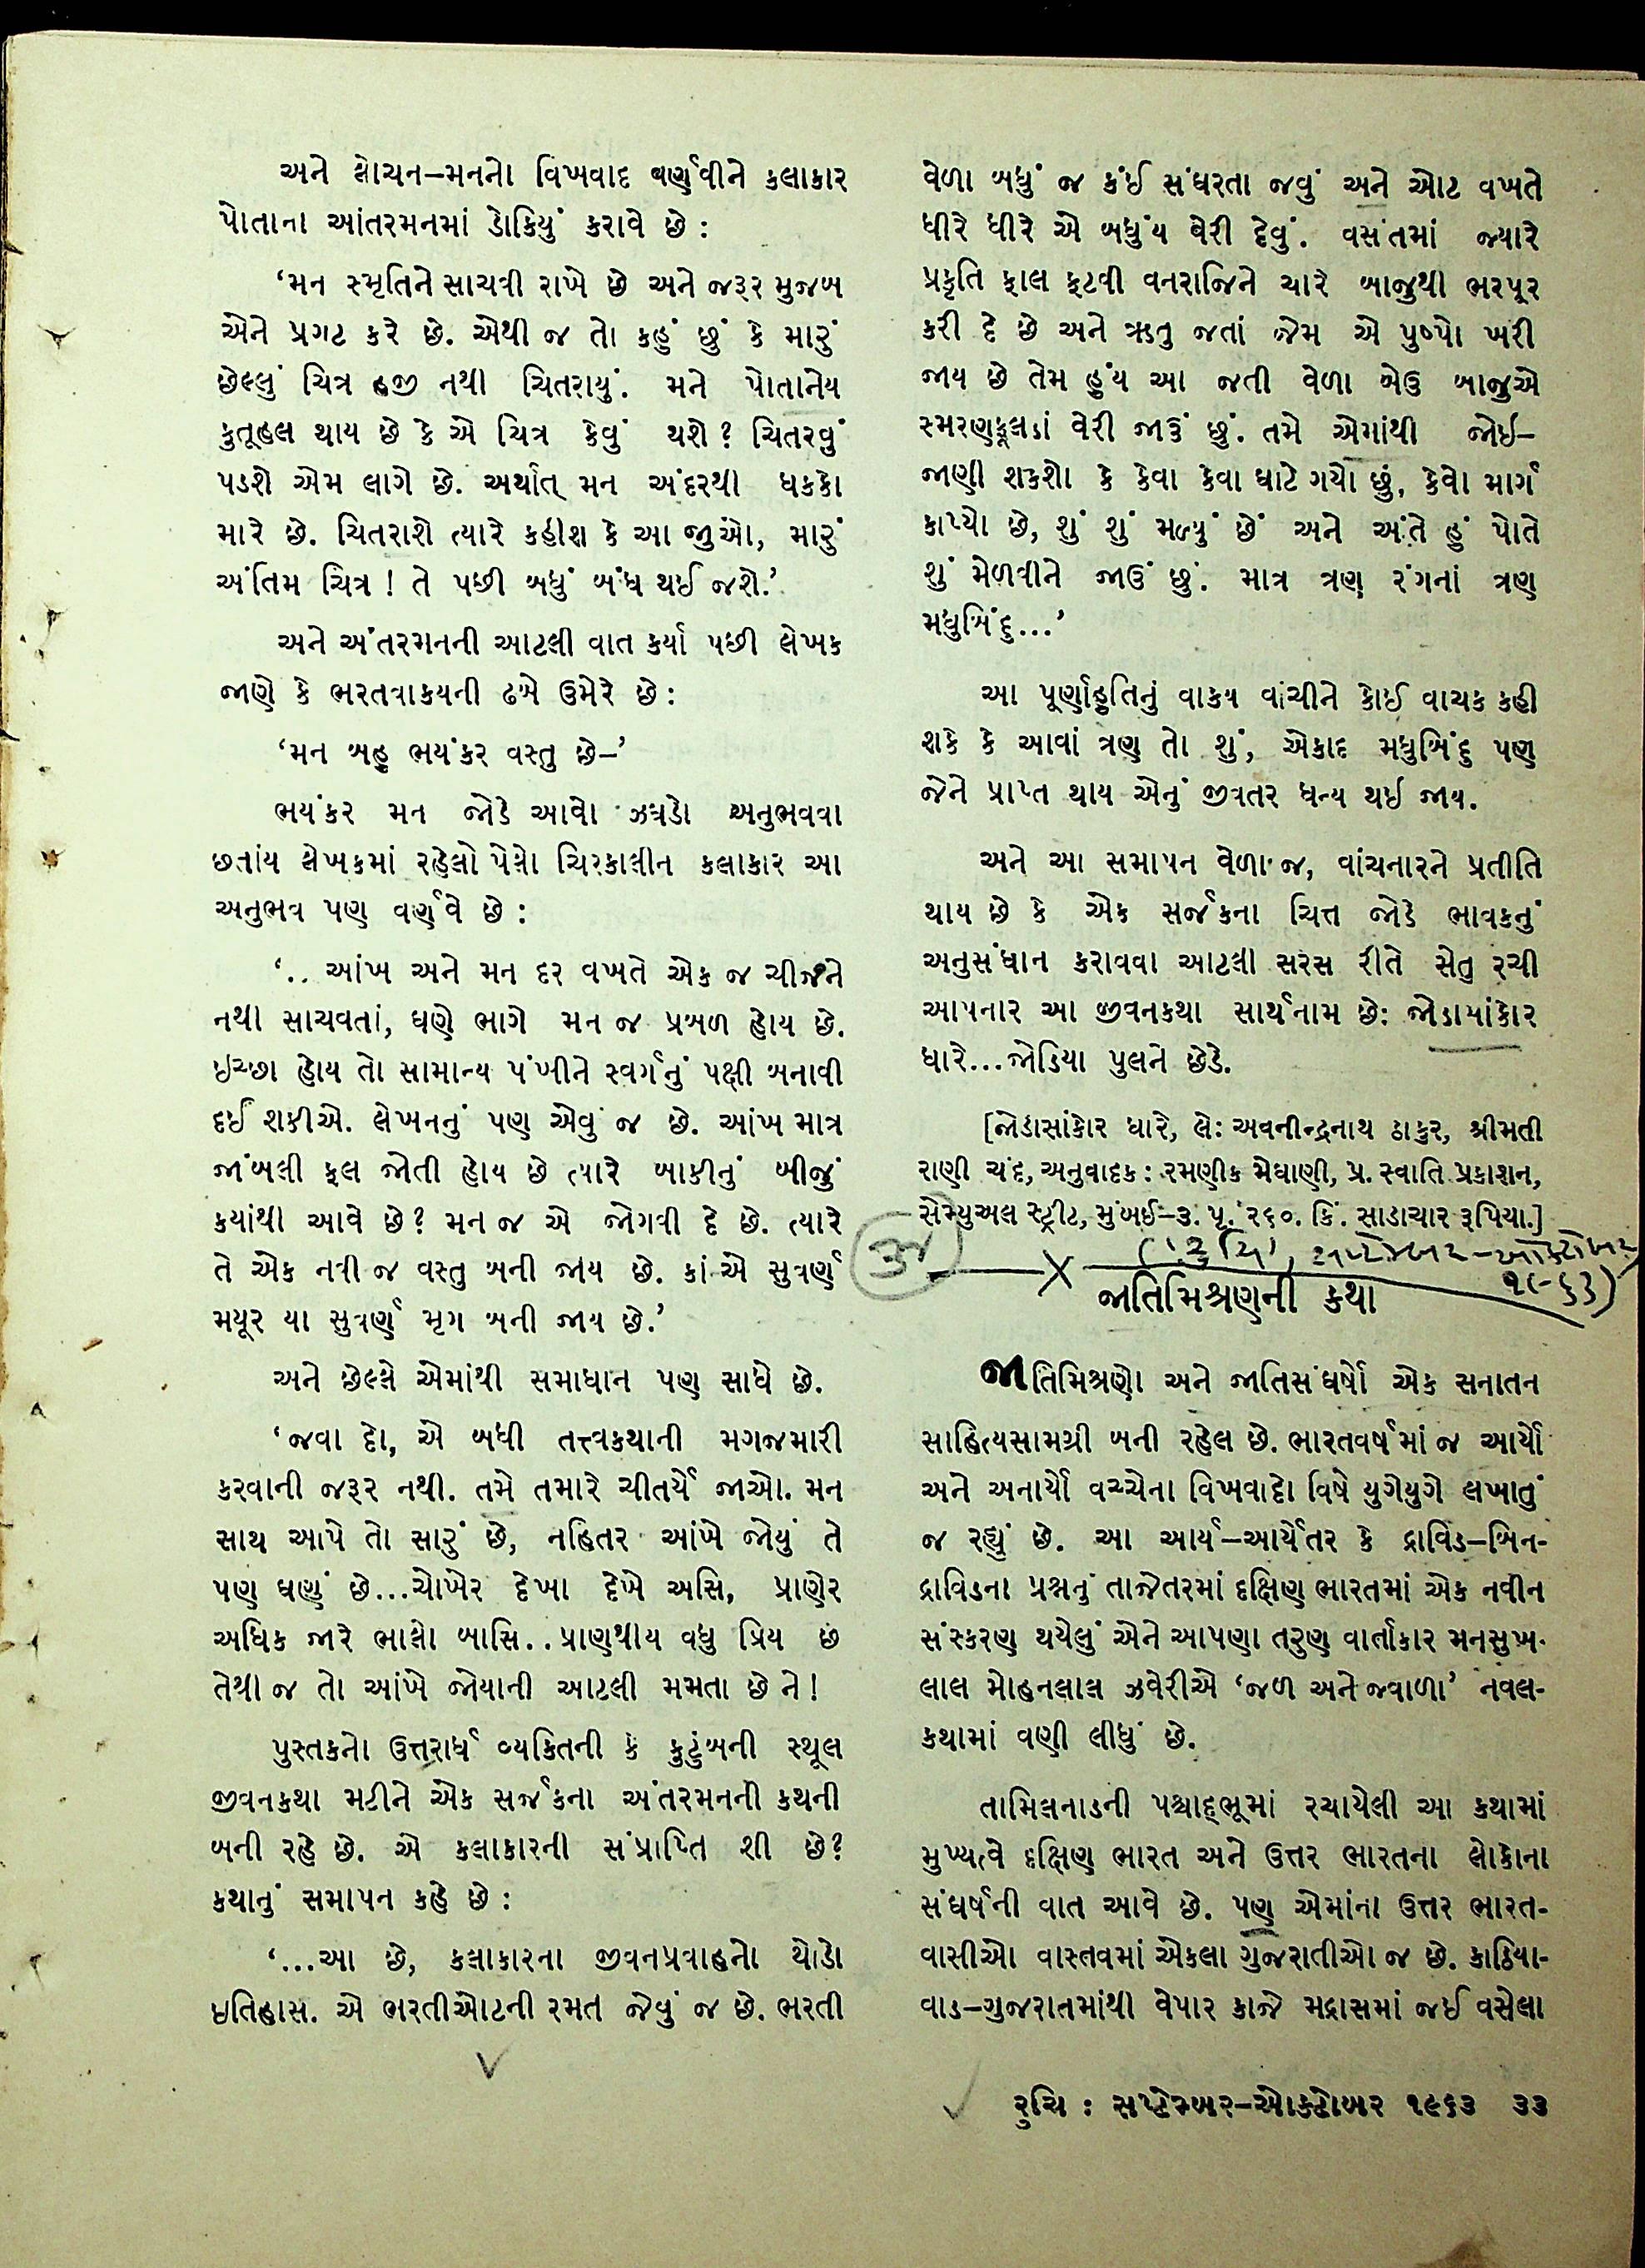 અને લોચન–મનનો વિખવાદ વર્ણવીને કલાકાર
પોતાના આંતરમનમાં ડોકિયું કરાવે છે :
‘મન સ્મૃતિને સાચવી રાખે છે અને જરૂર મુજબ
એને પ્રગટ કરે છે. એથી જ તો કહું છું કે મારું
છેલ્લું ચિત્ર હજી નથી ચિતરાયું. મને પોતાનેય
કુતૂહલ થાય છે કે એ ચિત્ર કેવું થશે ? ચિતરવું
પડશે એમ લાગે છે. અર્થાત્ મન અંદરથી ધક્કો
મારે છે. ચિતરાશે ત્યારે કહીશ કે આ જુઓ, મારું
અંતિમ ચિત્ર ! તે પછી બધું બંધ થઈ જશે.’
અને અંતરમનની આટલી વાત કર્યા પછી લેખક
જાણે કે ભરતવાક્યની ઢબે ઉમેરે છે :
‘મન બહુ ભયંકર વસ્તુ છે–’
ભયંકર મન જોડે આવો ઝઘડો અનુભવવા
છતાંય લેખકમાં રહેલો પેલો ચિરકાલીન કલાકાર આ
અનુભવ પણ વર્ણવે છે :
‘.. આંખ અને મન દર વખતે એક જ ચીજને
નથી સાચવતાં, ઘણે ભાગે મન જ પ્રબળ હોય છે.
ઇચ્છા હોય તો સામાન્ય પંખીને સ્વર્ગનું પક્ષી બનાવી
દઈ શકીએ. લેખનનું પણ એવું જ છે. આંખ માત્ર
જાંબલી ફૂલ જોતી હોય છે ત્યારે બાકીનું બીજું
કયાંથી આવે છે? મન જ એ જોગવી દે છે. ત્યારે
તે એક નવી જ વસ્તુ બની જાય છે. કાં એ સુવર્ણ
મયૂર યા સુવર્ણ મૃગ બની જાય છે.’
અને છેલ્લે એમાંથી સમાધાન પણ સાધે છે.
‘જવા દો, એ બધી તત્ત્વકથાની મગજમારી
કરવાની જરૂર નથી. તમે તમારે ચીતર્યે જાઓ. મન
સાથ આપે તો સારું છે, નહિતર આંખે જોયું તે
પણ ઘણું છે...ચોખેર દેખા દેખે અસિ, પ્રાણેર
અધિક જારે ભાલો બાસિ.. પ્રાણથીય વધુ પ્રિય છે
તેથી જ તો આંખે જોયાની આટલી મમતા છે ને !
પુસ્તકનો ઉત્તરાર્ધ વ્યકિતની કે કુટુંબની સ્થૂલ
જીવનકથા મટીને એક સર્જકના અંતરમનની કથની
બની રહે છે. એ કલાકારની સંપ્રાપ્તિ શી છે?
કથાનું સમાપન કહે છે :
‘...આ છે, કલાકારના જીવનપ્રવાહનો થોડો
ઇતિહાસ. એ ભરતીઓટની રમત જેવું જ છે. ભરતી
વેળા બધું જ કંઈ સંઘરતા જવું અને ઓટ વખતે
ધીરે ધીરે એ બધુંય વેરી દેવું. વસંતમાં જ્યારે
પ્રકૃતિ ફાલ ફૂટવી વનરાજિને ચારે બાજુથી ભરપૂર
કરી દે છે અને ઋતુ જતાં જેમ એ પુષ્પો ખરી
જાય છે તેમ હુંય આ જતી વેળા બેઉ બાજુએ
સ્મરણફૂલડાં વેરી જાઉં છું. તમે એમાંથી જોઇ–
જાણી શકશો કે કેવા કેવા ઘાટે ગયો છું, કેવો માર્ગ
કાપ્યો છે, શું શું મળ્યું છે અને અંતે હું પોતે
શું મેળવીને જાઉં છું. માત્ર ત્રણ રંગનાં ત્રણ
મધુબિંદુ...’
આ પૂર્ણાહુતિનું વાક્ય વાંચીને કોઈ વાચક કહી
શકે કે આવાં ત્રણ તો શું, એકાદ મધુબિંદુ પણ
જેને પ્રાપ્ત થાય એનું જીવતર ધન્ય થઈ જાય.
અને આ સમાપન વેળા જ, વાંચનારને પ્રતીતિ
થાય છે કે એક સર્જકના ચિત્ત જોડે ભાવકનું
અનુસંધાન કરાવવા આટલી સરસ રીતે સેતુ રચી
આપનાર આ જીવનકથા સાર્થનામ છે: જોડાસાંકોર
ધારે...જોડિયા પુલને છેડે.
[જોડાસાંકોર ધારે, લે: અવનીન્દ્રનાથ ઠાકુર, શ્રીમતી
રાણી ચંદ, અનુવાદક : રમણીક મેઘાણી, પ્ર. સ્વાતિ પ્રકાશન,
સેમ્યુઅલ સ્ટ્રીટ, મુંબઈ–૩. પૃ. ૨૬૦. કિં. સાડાચાર રૂપિયા.]
('રુચિ', સપ્ટેમ્બર–ઓક્ટોબર
૧૯૬૩)
જાતિમિશ્રણની કથા
જાતિમિશ્રણો અને જાતિસંઘર્ષો એક સનાતન
સાહિત્યસામગ્રી બની રહેલ છે. ભારતવર્ષમાં જ આર્યો
અને અનાર્યો વચ્ચેના વિખવાદો વિષે યુગેયુગે લખાતું
જ રહ્યું છે. આ આર્ય–આર્યેતર કે દ્રાવિડ–બિન-
દ્રાવિડના પ્રશ્નનું તાજેતરમાં દક્ષિણ ભારતમાં એક નવીન
સંસ્કરણ થયેલું એને આપણા તરુણ વાર્તાકાર મનસુખ-
લાલ મોહનલાલ ઝવેરીએ ‘જળ અને જ્વાળા’ નવલ-
કથામાં વણી લીધું છે.
તામિલનાડની પશ્ચાદ્ભૂમાં રચાયેલી આ કથામાં
મુખ્યત્વે દક્ષિણ ભારત અને ઉત્તર ભારતના લોકોના
સંઘર્ષની વાત આવે છે. પણ એમાંના ઉત્તર ભારત-
વાસીઓ વાસ્તવમાં એકલા ગુજરાતીઓ જ છે. કાઠિયા-
વાડ–ગુજરાતમાંથી વેપાર કાજે મદ્રાસમાં જઈ વસેલા
રુચિ : સપ્ટેમ્બર–ઓક્ટોબર ૧૯૬૩ ૩૩